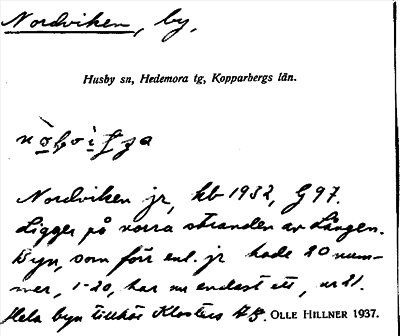 Nordviken, by,
Husby sn, Hedemora tg, Kopparbergs län.
Nordviken jr, kb 1932, G 97.
Ligger på norra stranden av Lången.
Byn, som förr enl. jr hade 20 num-
mer, 1-20, har nu endast ett, nr 21.
Hela byn tillhör Klosters AB. OLLE HILLNER 1937.